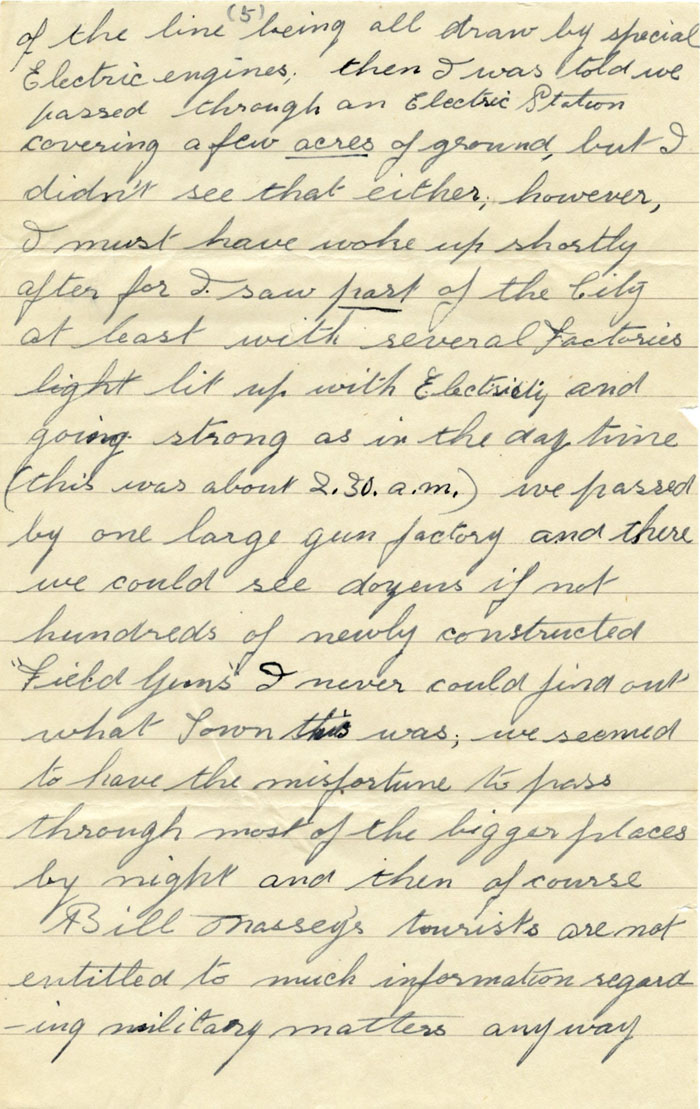 (5)
of the line being all draw by special
Electric engines; then I was told we
passed through an Electric Station
covering a few acres of ground, but I
didn't see that either; however,
I must have woke up shortly
after for I saw part of the City
at least with several Factories
light lit up with Electricity and
going strong as in the day time
(this was about 2.30. a.m.) we passed
by one large gun factory and there
we could see dozens if not
hundreds of newly constructed
"Field Guns" I never could find out
what Town this was; we seemed
to have the misfortune to pass
through most of the bigger places
by night and then of course
Bill Massey's tourists are not
entitled to much information regard
-ing military matters anyway